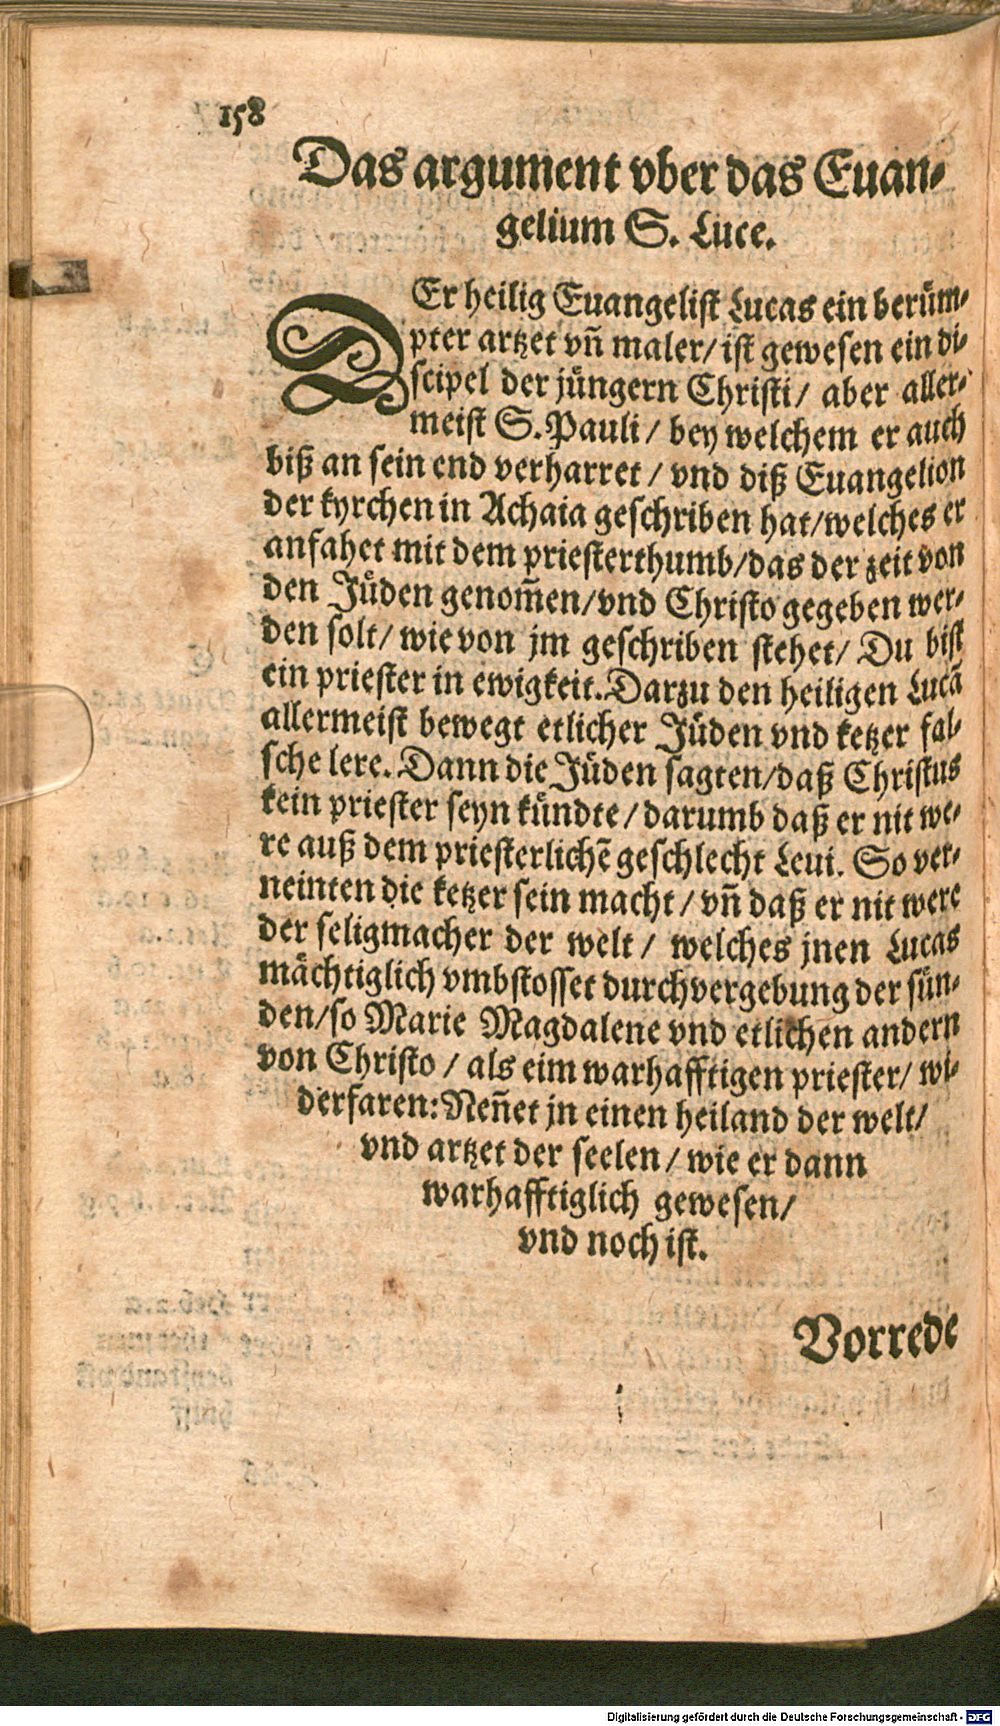 158
Das argument vber das Euan-
gelium S. Luce.
DEr heilig Euangelist Lucas ein berüm-
pter artzet vñ maler/ ist gewesen ein di-
scipel der jüngern Christi/ aber aller-
meist S. Pauli/ bey welchem er auch
biß an sein end verharret/ vnd diß Euangelion
der kyrchen in Achaia geschriben hat/welches er
anfahet mit dem priesterthumb/das der zeit von
den Jüden genom̃en/vnd Christo gegeben wer-
den solt/ wie von jm geschriben stehet/ Du bist
ein priester in ewigkeit. Darzu den heiligen Lucã
allermeist bewegt etlicher Jüden vnd ketzer fal-
sche lere. Dann die Jüden sagten/daß Christus
kein priester seyn kündte/ darumb daß er nit we-
re auß dem priesterlichẽ geschlecht Leui. So ver-
neinten die ketzer sein macht/ vñ daß er nit were
der seligmacher der welt/ welches jnen Lucas
mächtiglich vmbstosset durch vergebung der sün-
den/so Marie Magdalene vnd etlichen andern
von Christo/ als eim warhafftigen priester/ wi-
derfaren: Neñet jn einen heiland der welt/
vnd artzet der seelen/ wie er dann
warhafftiglich gewesen/
vnd noch ist.
Vorrede
Digitalisierung gefördert durch die Deutsche Forschungsgemeinschaft - DFG